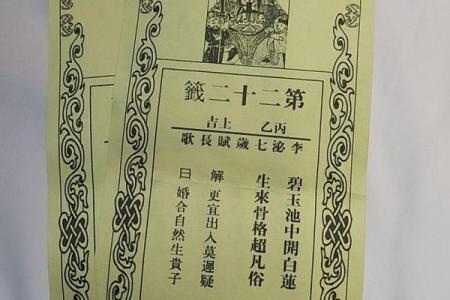 第二十二籤
丙乙 上吉
李泌七歲賦長歌
碧玉池中開白蓮
生來骨格超凡俗
解 更宜出入莫遲疑
曰 婚合自然生貴子